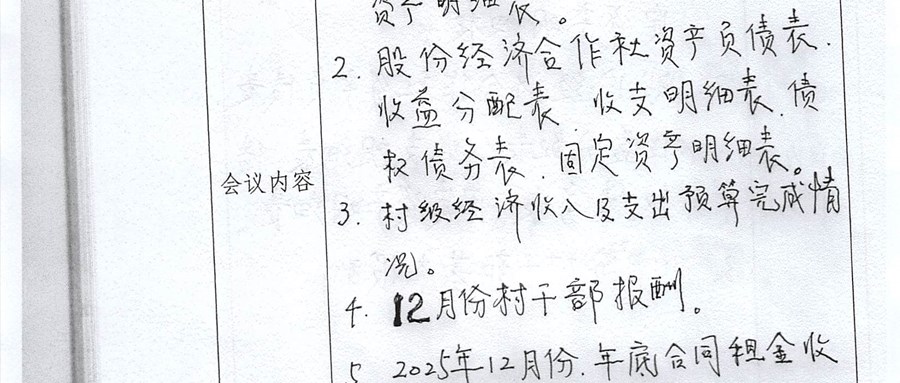 资产明细表。
2. 股份经济合作社资产负债表.
收益分配表、收支明细表、债
权债务表、固定资产明细表。
会议内容
3. 村级经济收入及支出预算完成情
况。
4. 12月份村干部报酬。
5 2025年12月份.年底合同租金收